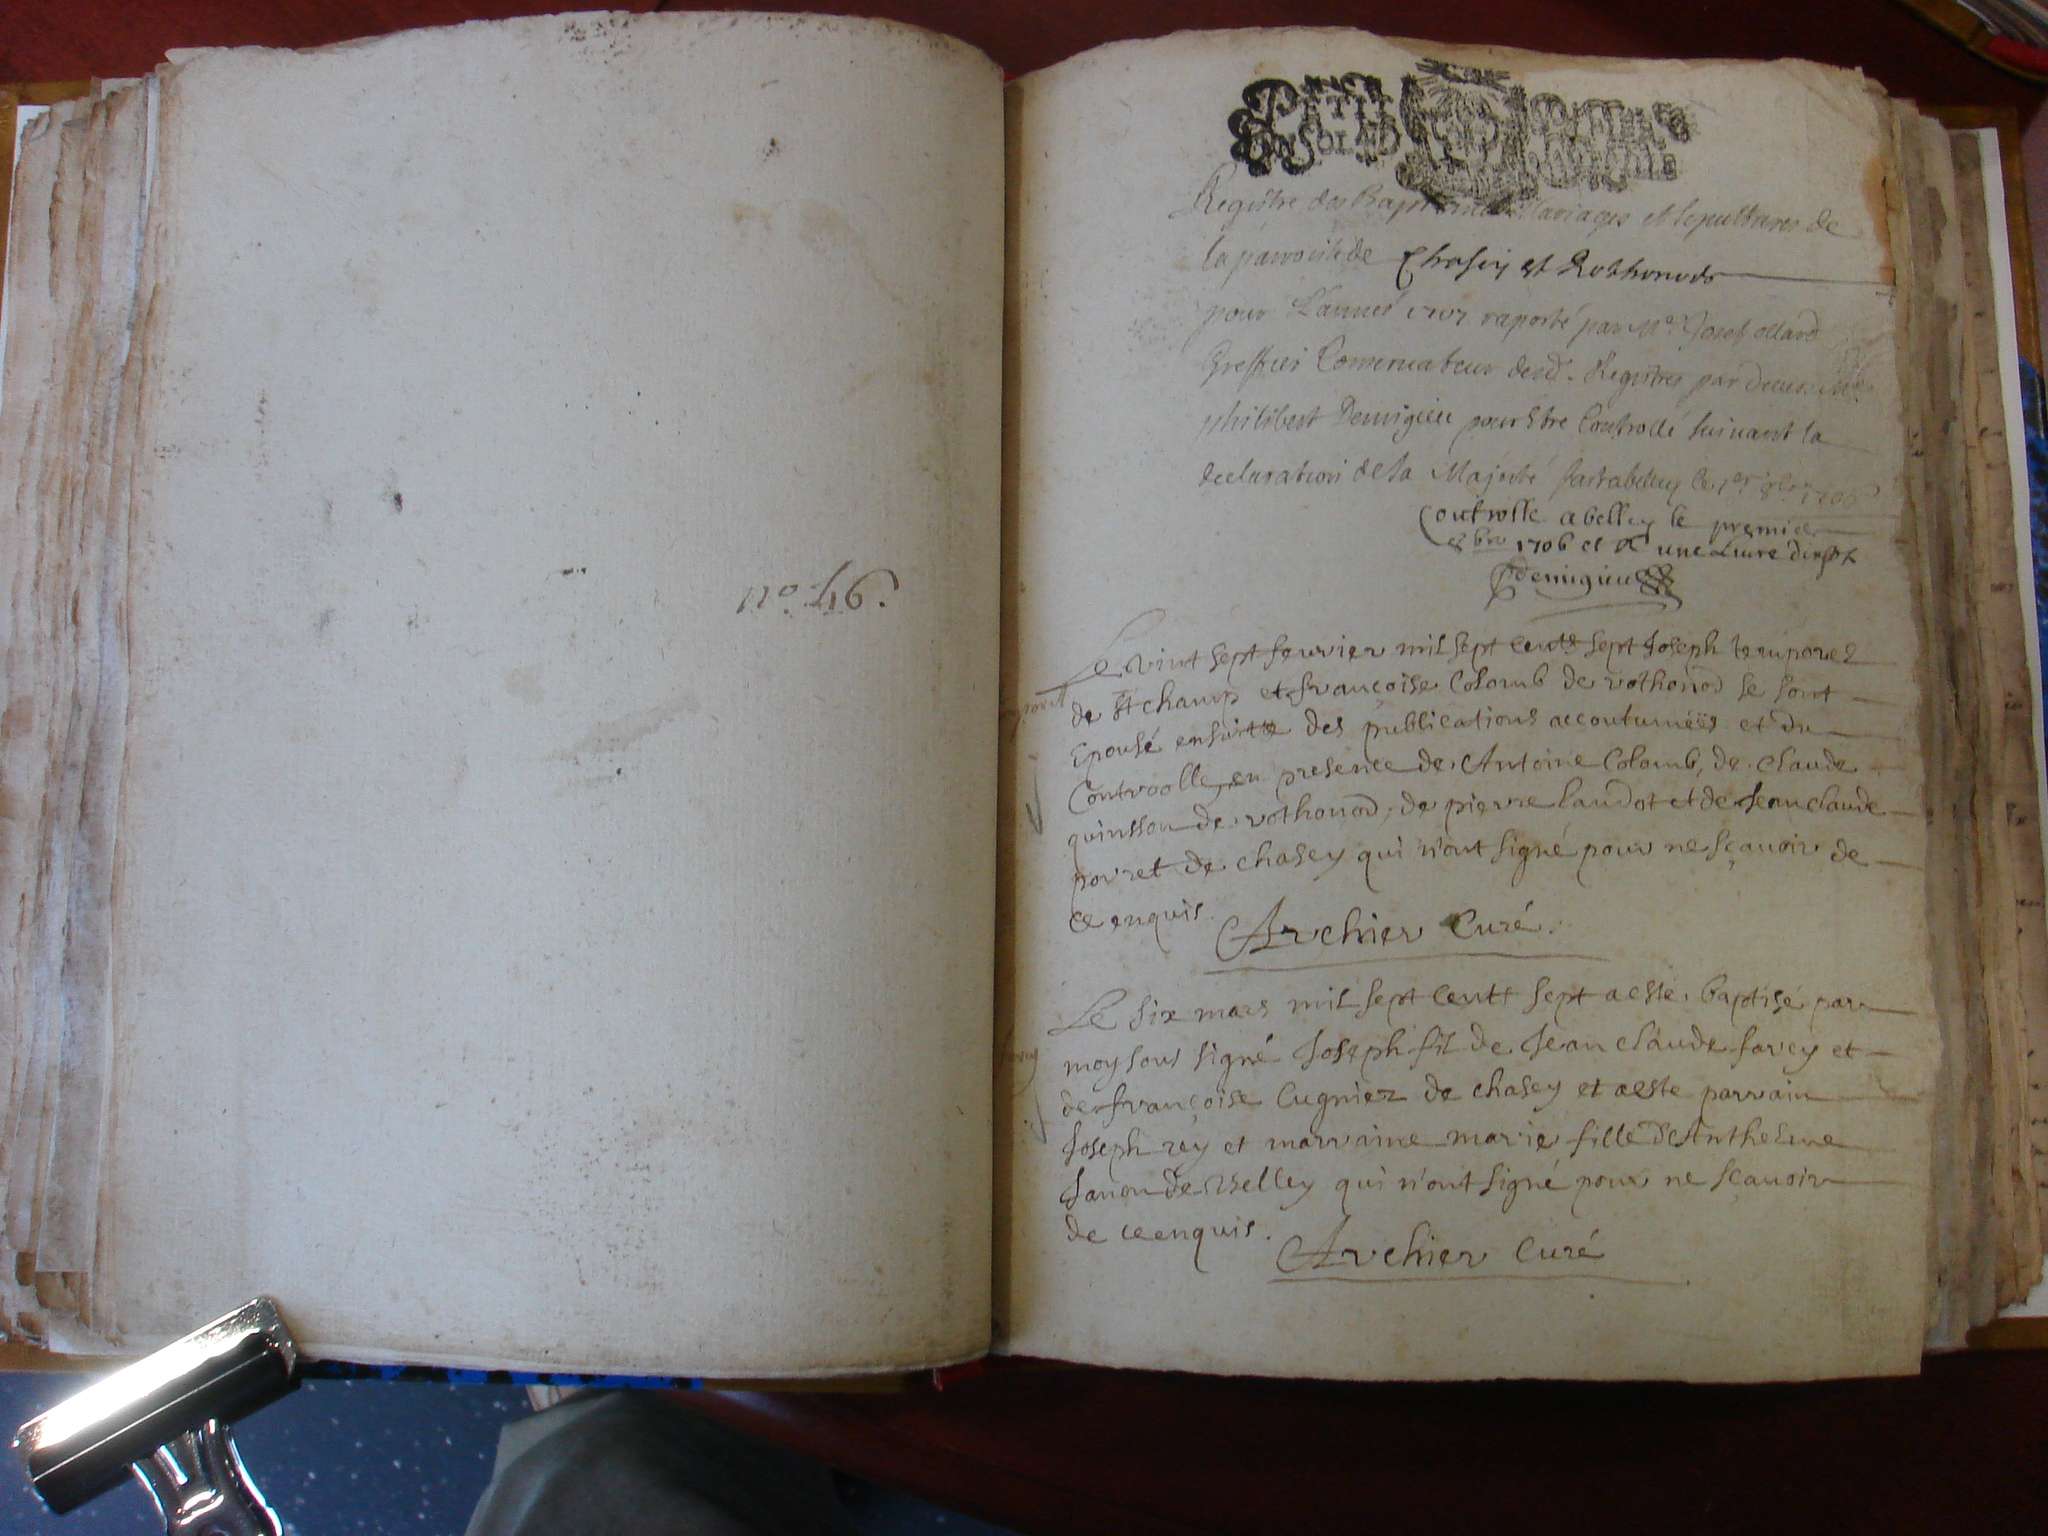 Registre des Baptemes Mariages et sepultures de
la parroisse de Chasey et Rothonod
pour L'année 1707 raporté par Me. ollard
Greffier Conservateur desd. Registres par devant Me
philibert Demigieu pour Estre Controllé suivant la
declaration de sa Majesté fait a belley le 1er 1706
Controlle a belley le premier
1706 et une Livre dix
Demigieu
Le vint sept fevrier mil sept cents sept Joseph temporel
de St champ et françoise Colomb de rothonod se sont
Epousé ensuitte des publications accoutumées et du
Controolle, en presence de Antoine Colomb, de claude
quinsson de rothonod, de pierre laudot et de Jean claude
porret de chasey qui n'ont signé pour ne sçavoir de
ce enquis.
Archier Curé.
Le six mars mil sept cents sept aesté baptisé par
moy sous signé Joseph fil de Jean claude favey et
de françoise Cugniez de chasey et aesté parrain
Joseph rey et marraine marie fille d'Anthelme
Janon de Belley qui n'ont signé pour ne sçavoir
de ce enquis.
Archier Curé